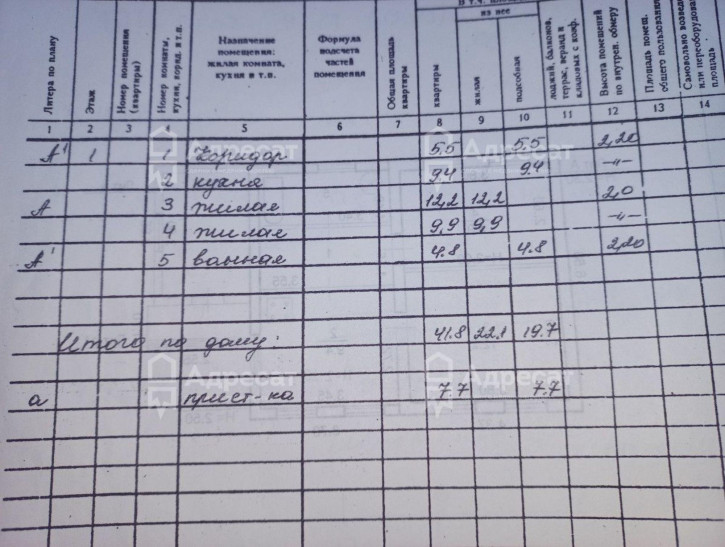 в т.ч.
из нее
Литера по плану
Этаж
Номер помещения
(квартиры)
Номер комнаты,
кухни, корид. и т.п.
Назначение
помещения:
жилая комната,
кухня и т.п.
Формула
подсчета
частей
помещения
Общая площадь
квартиры
квартиры
жилая
подсобная
лоджий, балконов,
террас, веранд и
кладовых с коэф.
Высота помещений
по внутрен. обмеру
Площадь помещ.
общего пользования
Самовольно возведе
или переоборудован
площадь
1 2 3 4 5 6 7 8 9 10 11 12 13 14
А' 1 1 Коридор 5.5 5.5 2,20
2 кухня 9.4 9.4 -"-
А 3 жилая 12,2 12,2 2,0
4 жилая 9,9 9,9 -"-
А' 5 ванная 4.8 4.8 2,20
Итого по дому: 41.8 22.1 19.7
а прист-ка 7.7 7.7
Адресат
Адресат
Адресат
Адресат